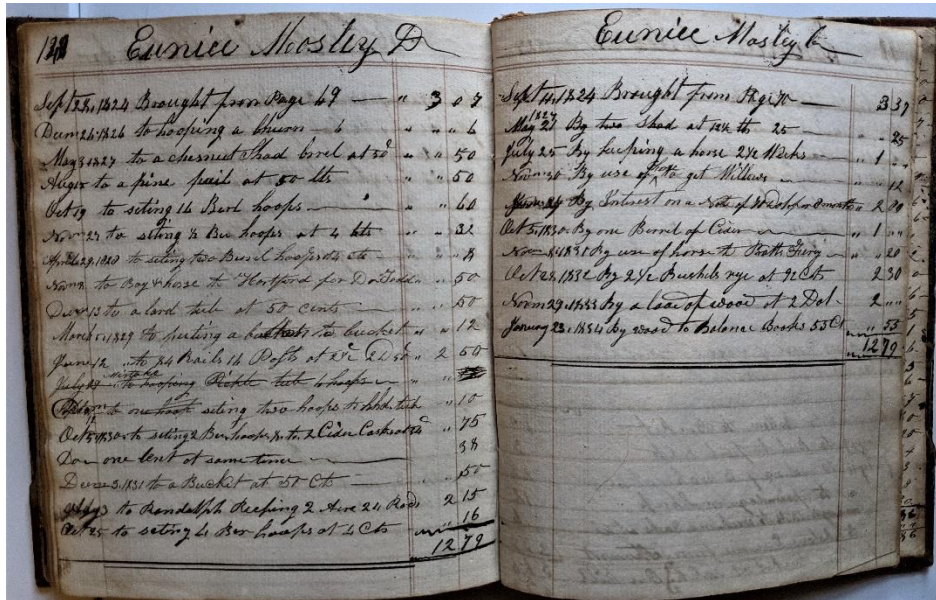 Eunice Mosley Dr
Sept 28, 1824 Brought from Page 69 — " 3 07
to hooping a Churn — 6 " " 6
May 3 1827 to a chesnut Shad brrel at 50 " " 50
to a pine pail at 50 cts " " 50
Oct 19 to seting 14 Barl hoops — " 60
Nov 27 to seting 8 Bar hoops at 4 cts " " 32
to seting two Barrel hoops at 4 cts " " 8
to Boy & horse to Hartford for Dr Todd " " 50
to a lard tub at 50 cents — " " 50
March 5, 1829 to puting a to bucket " " 12
June 12 " to 34 Rails 14 Posts at 2 50
July mistake to hooping Pickle tub 6 hoops — "
to one hoop seting two hoops to tub " 10
Oct 5 1830 to seting 2 Bar hoops to 2 Cider Casks at 75
Do one lent at same time — 38
3, 1831 to a Bucket at 50 Cts — 50
to Randolph Reeping 2 Acre 24 Rods 2 15
Oct 25 to seting 4 Bar hoops at 4 Cts 16
12 79
Eunice Mosley Cr
Sept 1824 Brought from Page 70 — 3 37
May 21 1827 By two Shad at 12½ cts 25 — " 25
July 25 By keeping a horse 2½ Weeks — " 1 "
By use of to get Willows — " 12
By Interest on a Note of months " 2
Oct 5, 1830 By one Barrel of Cider — " 1 "
1831 By use of horse to " 20
Oct 28, 1832 By 2½ Bushels rye at 92 Cts 2 30
29, 1833 By a load of wood at 2 Dol 2 "
January 23, 1834 By wood to Balance Books 55 Ct " 55
12 79